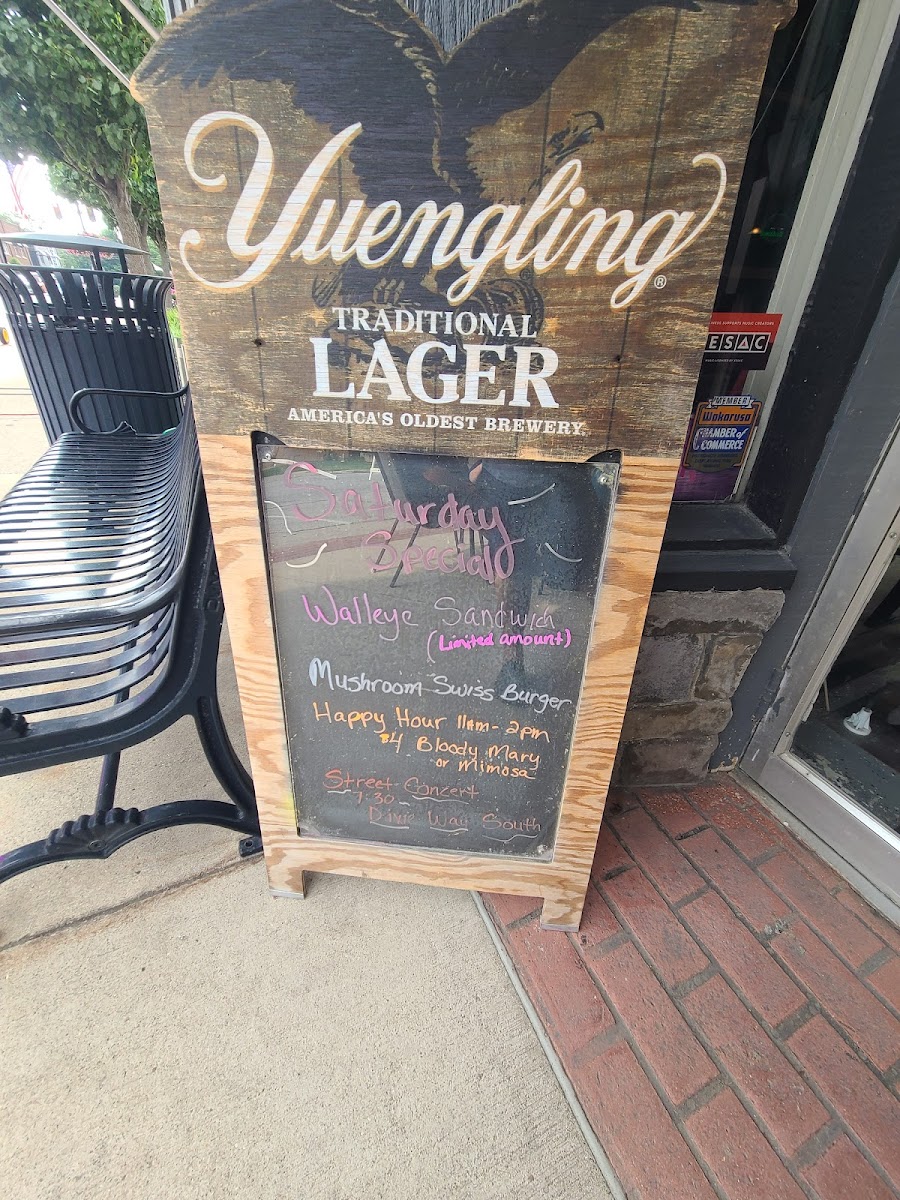 Yuengling®
TRADITIONAL
LAGER
AMERICA'S OLDEST BREWERY
Saturday
Special
Walleye Sandwich
(Limited amount)
Mushroom Swiss Burger
Happy Hour 11am-2pm
$4 Bloody Mary
or Mimosa
Street Concert
7:30
Dixie Way South
ESAC
MEMBER
Wakarusa
CHAMBER of
COMMERCE